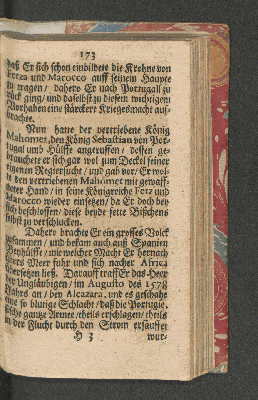 173
daß Er sich schon einbildete die Krohne von
Fetza und Marocco auff seinem Haupte
zu tragen / dahero Er nach Portugall zu
rück ging / und daselbst zu diesem wichtigen
Vorhaben eine stärckere Kriegesmacht auf-
brachte.
Nun hatte der vertriebene König
Mahomet, den König Sebastian von Por-
tugal umb Hülffe angeruffen / dessen ge-
brauchete er sich gar wol zum Deckel seiner
eigenen Regiersuche / und gab vor / Er wol-
te den vertriebenen Mahomet mit gewaff-
neter Hand / in seine Königreiche Fetz und
Marocco wieder einsetzen / da Er doch bey
sich beschlossen / diese beyde fette Bißchens
selbst zu verschlucken.
Dahero brachte Er ein grosses Volck
zusammen / und bekam auch auß Spanien
Beyhülffe / mit welcher Macht Er hernach
übers Meer fuhr und sich nacher Africa
übersetzen ließ. Darauff traff Er das Heer
der Ungläubigen / im Augusto des 1578
Jahrs an / bey Alcazara, und es geschahe
eine so blutige Schlacht / daß die Portugie-
sische gantze Armee / theils erschlagen / theils
in der Flucht durch den Strom ersäuffet
H 3
wur-